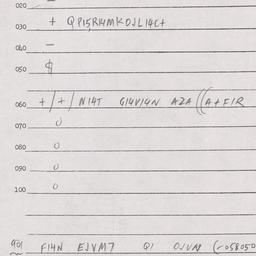 020 —
030 + QP15R14MKOJL14C+
040 —
050 $
060 +/+/ N14T G14V14N AZA ((A+F1R
070 0
080 0
090 0
100 0
901 F14N EJVM7 Q1 OJVM (-058050